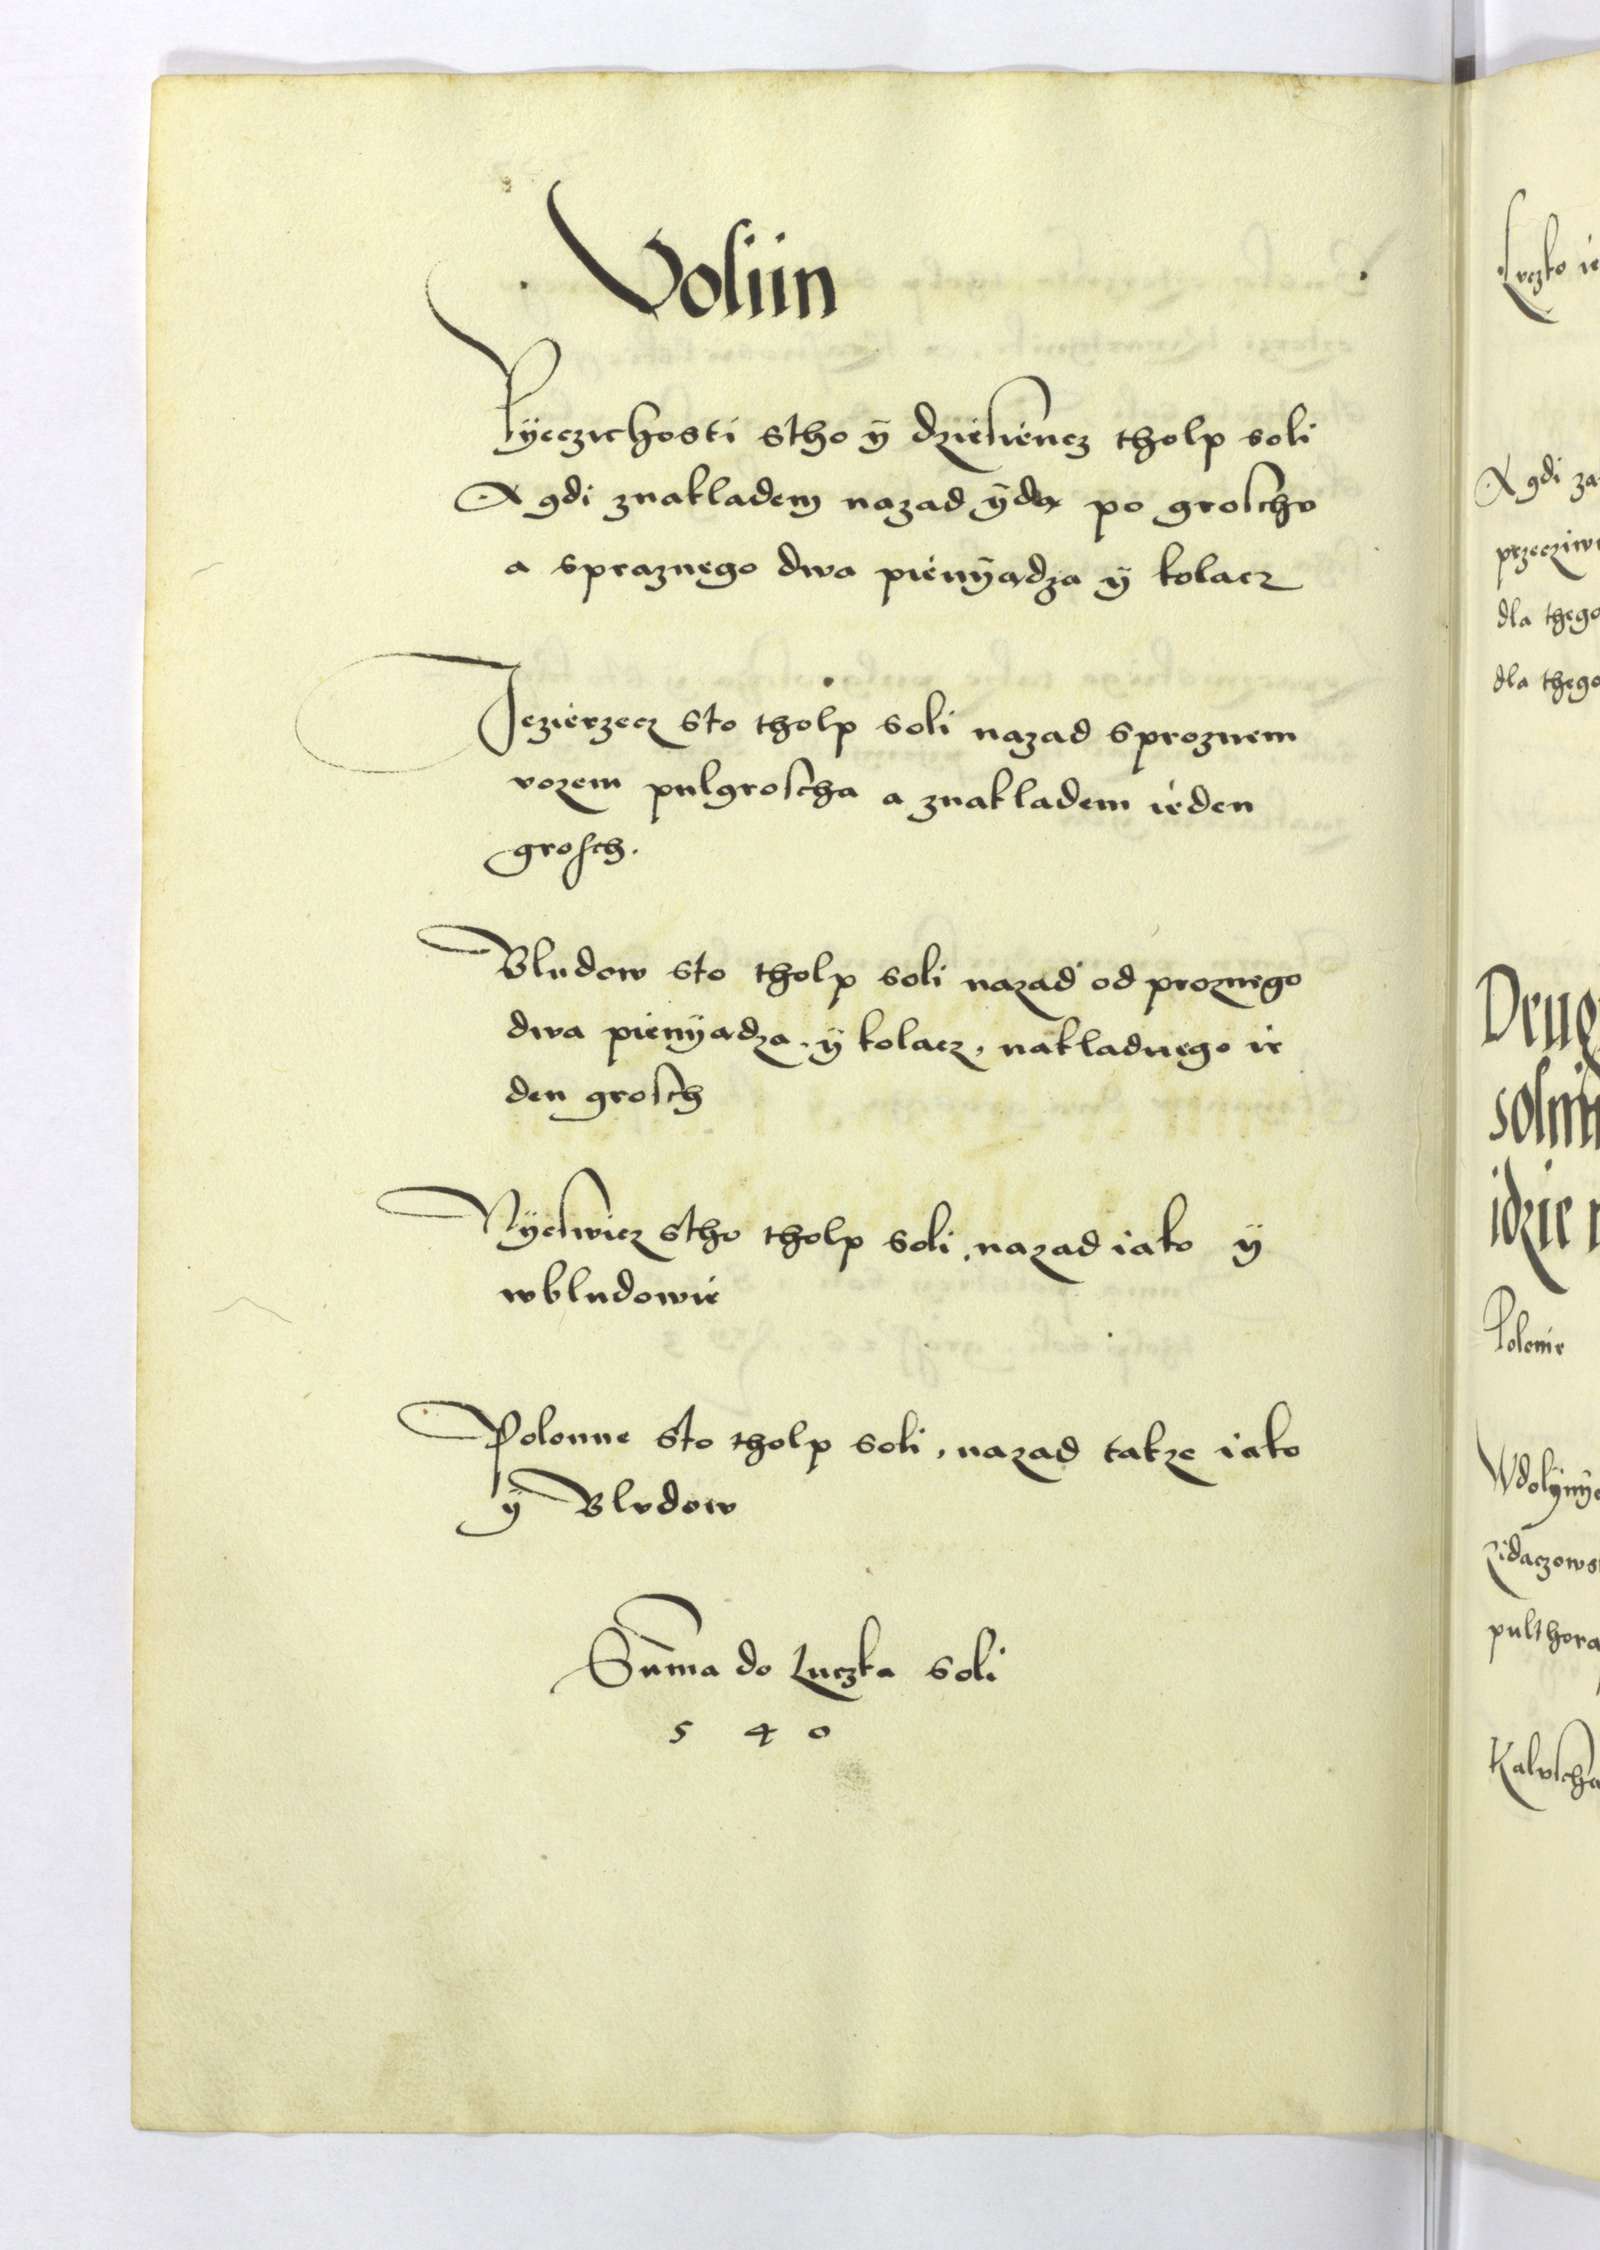 Voliin
Pÿeczichosti stho ÿ dziesiencz tholp soli
A gdi znakladem nazad ÿdą po groschv
a spraznego dwa pienÿądza ÿ kolacz
Jezierzecz sto tholp soli nazad sproznem
vozem pulgroscha a znakladem ieden
grosch.
Bludow sto tholp soli nazad od proznego
dwa pienÿądza. ÿ kolacz, nakladnego ie
den grosch
Nÿeswicz stho tholp soli, nazad iako ÿ
wbludowie
Polonne sto tholp soli, nazad takze iako
ÿ Blvdow
Suma do Luczka soli
5 4 0
Lvczko ie
A gdi za
przecziw
dla thego
dla thego
Drug
solim
idzie
Polonie
Wdolÿnÿ
Zidaczows
pulthora
Kalvscha